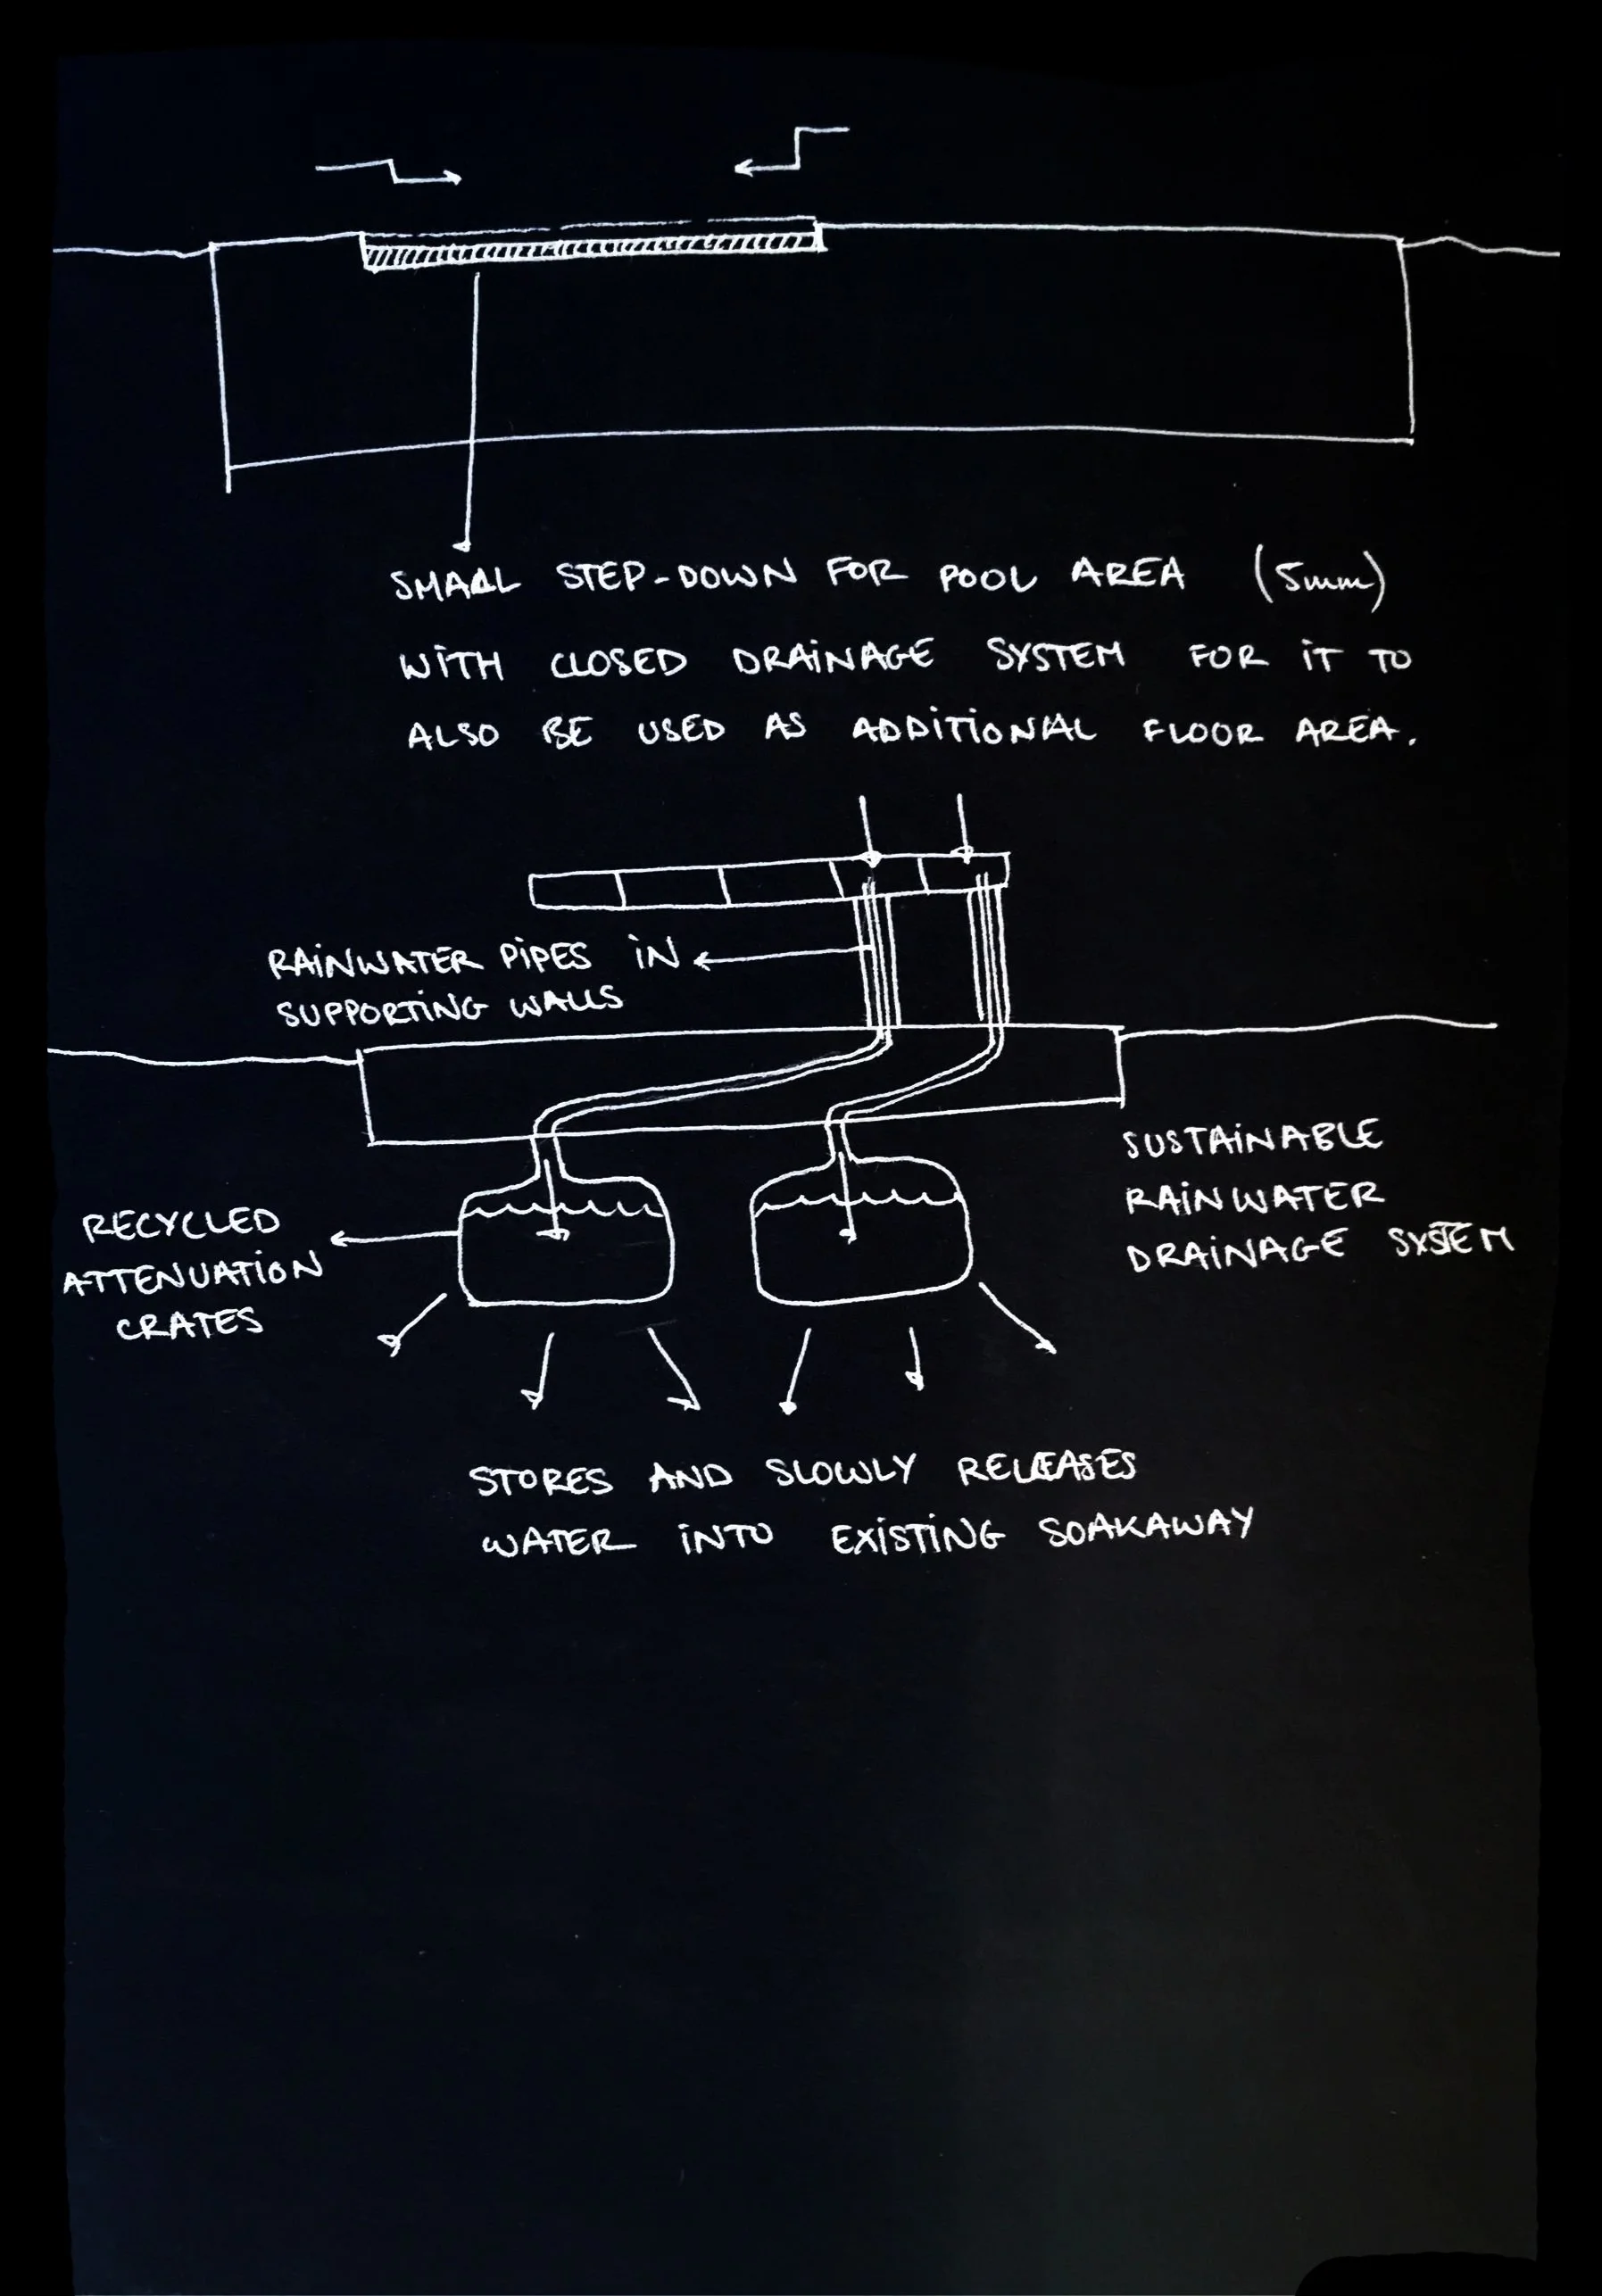 SMALL STEP-DOWN FOR POOL AREA (5mm)
WITH CLOSED DRAINAGE SYSTEM FOR IT TO
ALSO BE USED AS ADDITIONAL FLOOR AREA.
RAINWATER PIPES IN
SUPPORTING WALLS
SUSTAINABLE
RAINWATER
DRAINAGE SYSTEM
RECYCLED
ATTENUATION
CRATES
STORES AND SLOWLY RELEASES
WATER INTO EXISTING SOAKAWAY